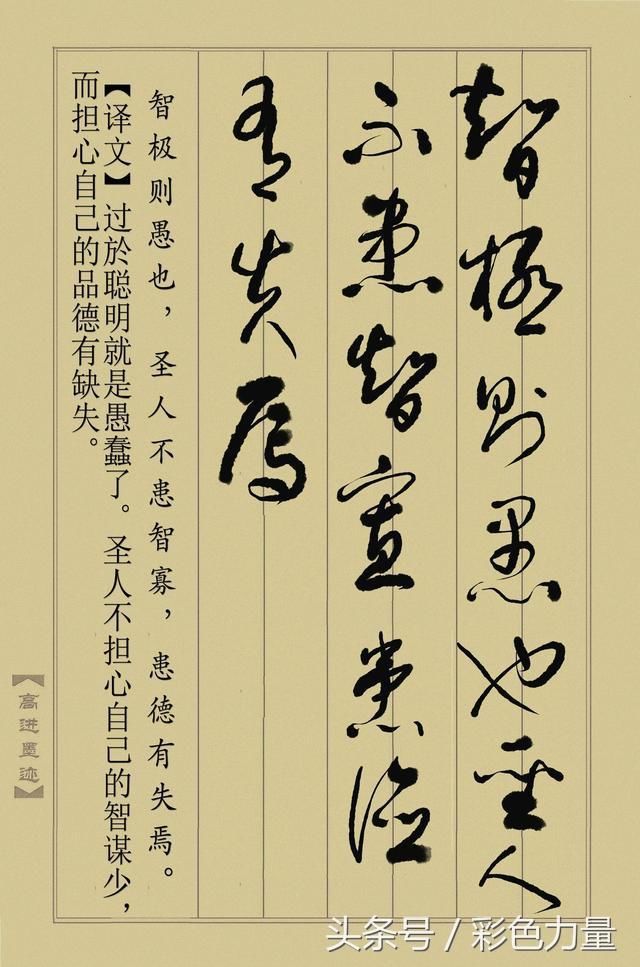 智极则愚也圣人
不患智寡患德
有失焉
智极则愚也，圣人不患智寡，患德有失焉。
【译文】过於聪明就是愚蠢了。圣人不担心自己的智谋少，
而担心自己的品德有缺失。
【高进墨迹】
头条号／彩色力量